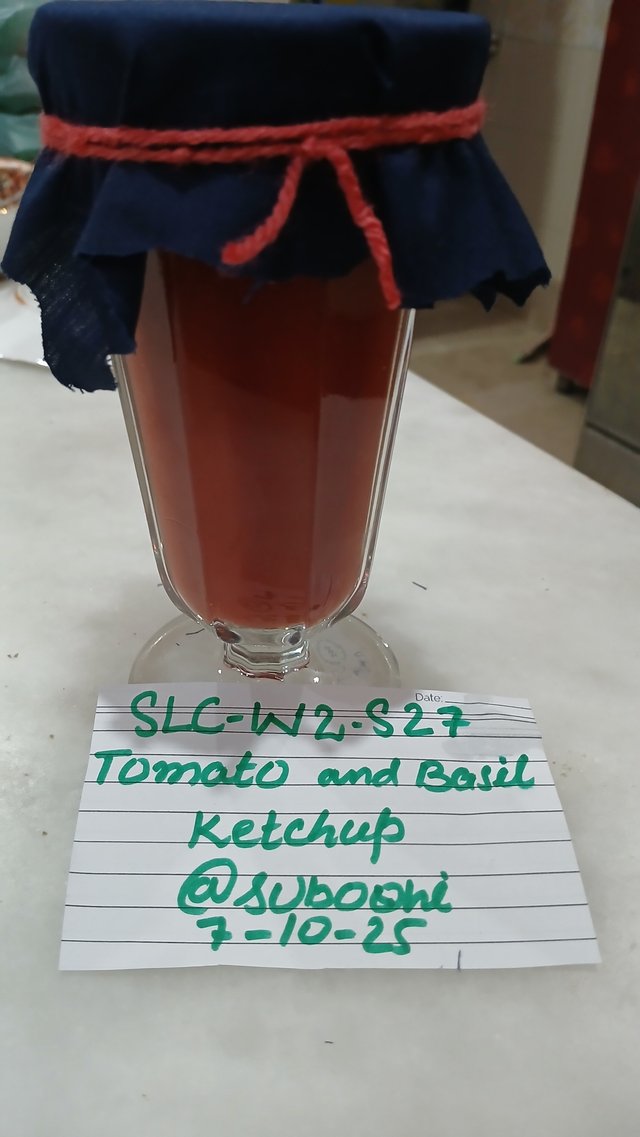 Date:
SLC-W2-S27
Tomato and Basil
Ketchup
@suboohi
7-10-25